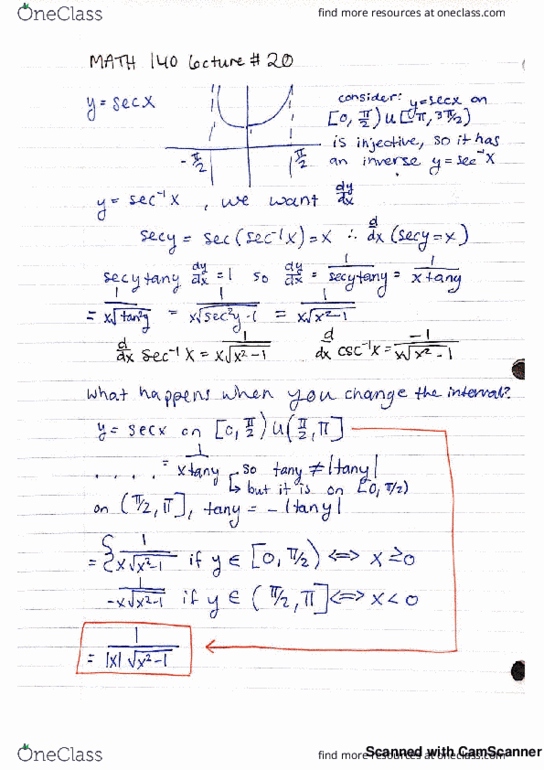 OneClass
find more resources at oneclass.com
MATH 140 Lecture # 20
y = sec x
- π/2
π/2
consider: y = sec x on
[0, π/2) ∪ [π, 3π/2)
is injective, so it has
an inverse y = sec⁻¹x
y = sec⁻¹x , we want dy/dx
sec y = sec (sec⁻¹x) = x ∴ d/dx (sec y = x)
sec y tan y dy/dx = 1 so dy/dx = 1/(sec y tan y) = 1/(x tan y)
= 1/(x√(tan²y)) = 1/(x√(sec²y - 1)) = 1/(x√(x² - 1))
d/dx sec⁻¹x = 1/(x√(x² - 1)) d/dx csc⁻¹x = -1/(x√(x² - 1))
What happens when you change the interval?
y = sec x on [0, π/2) ∪ (π/2, π]
. . . . = 1/(x tan y) so tan y ≠ |tan y|
↳ but it is on [0, π/2)
on (π/2, π], tan y = - |tan y|
= { 1/(x√(x² - 1)) if y ∈ [0, π/2) ⟺ x ≥ 0
1/(-x√(x² - 1)) if y ∈ (π/2, π] ⟺ x < 0
= 1/(|x| √(x² - 1))
OneClass
find more resources at oneclass.com
Scanned with CamScanner